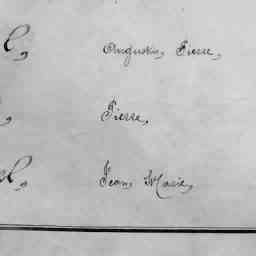 l, Augustin, Pierre,
Pierre,
l, Jean, Marie,